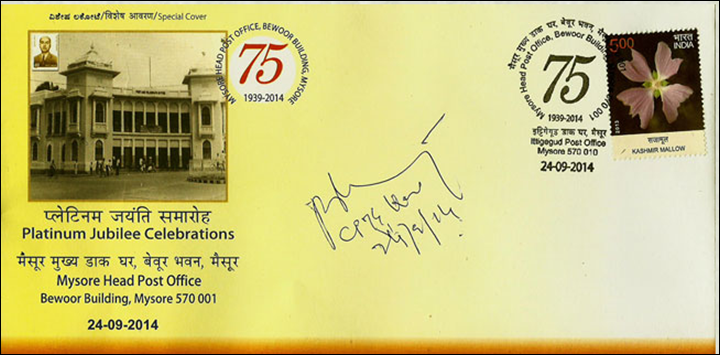 ವಿಶೇಷ ಲಕೋಟೆ/विशेष आवरण/Special Cover
MYSORE HEAD POST OFFICE, BEWOOR BUILDING, MYSORE
75
1939-2014
प्लेटिनम जयंति समारोह
Platinum Jubilee Celebrations
मैसूर मुख्य डाक घर, बेवूर भवन, मैसूर
Mysore Head Post Office
Bewoor Building, Mysore 570 001
24-09-2014
मैसूर मुख्य डाक घर, बेवूर भवन, मैसूर
Mysore Head Post Office, Bewoor Building 570 001
75
1939-2014
इट्टिगेगूड डाक घर, मैसूर
Ittigegud Post Office
Mysore 570 010
24-09-2014
5.00
भारत
INDIA
2013
KASHMIR MALLOW